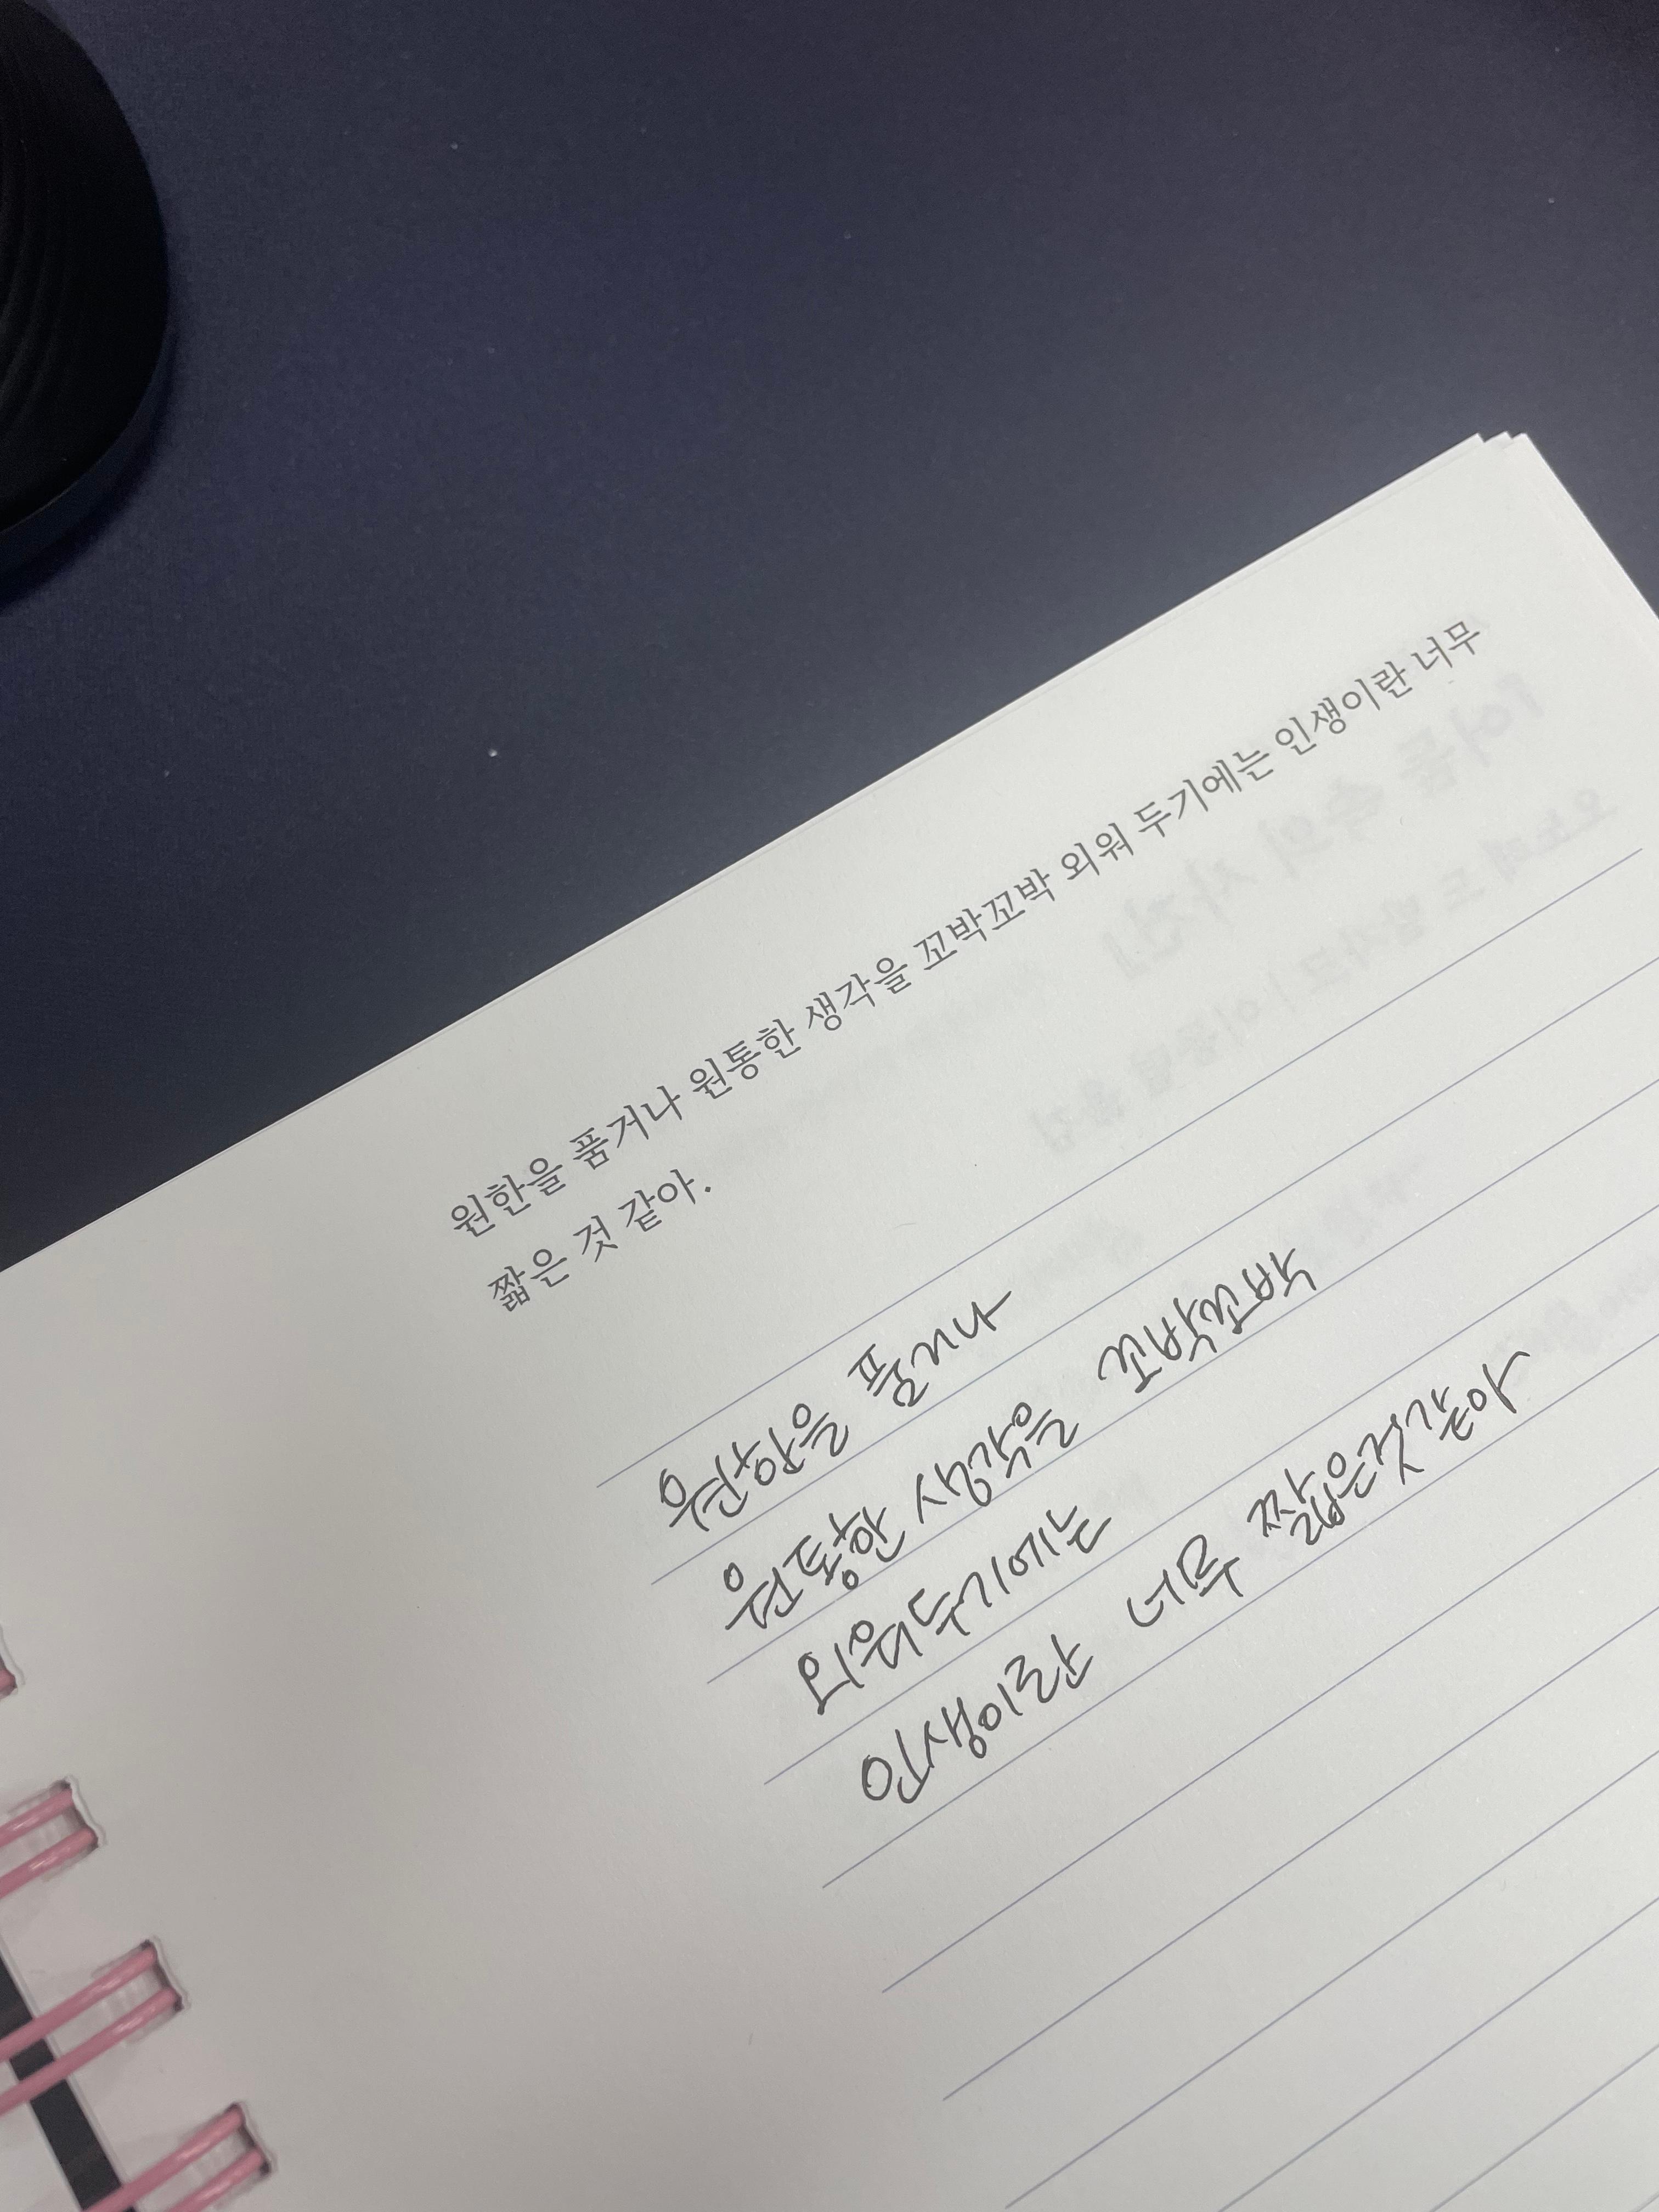 원한을 품거나 원통한 생각을 꼬박꼬박 외워 두기에는 인생이란 너무
짧은 것 같아.
원한을 품거나
원통한 생각을 꼬박꼬박
외워두기에는
인생이란 너무 짧은것같아